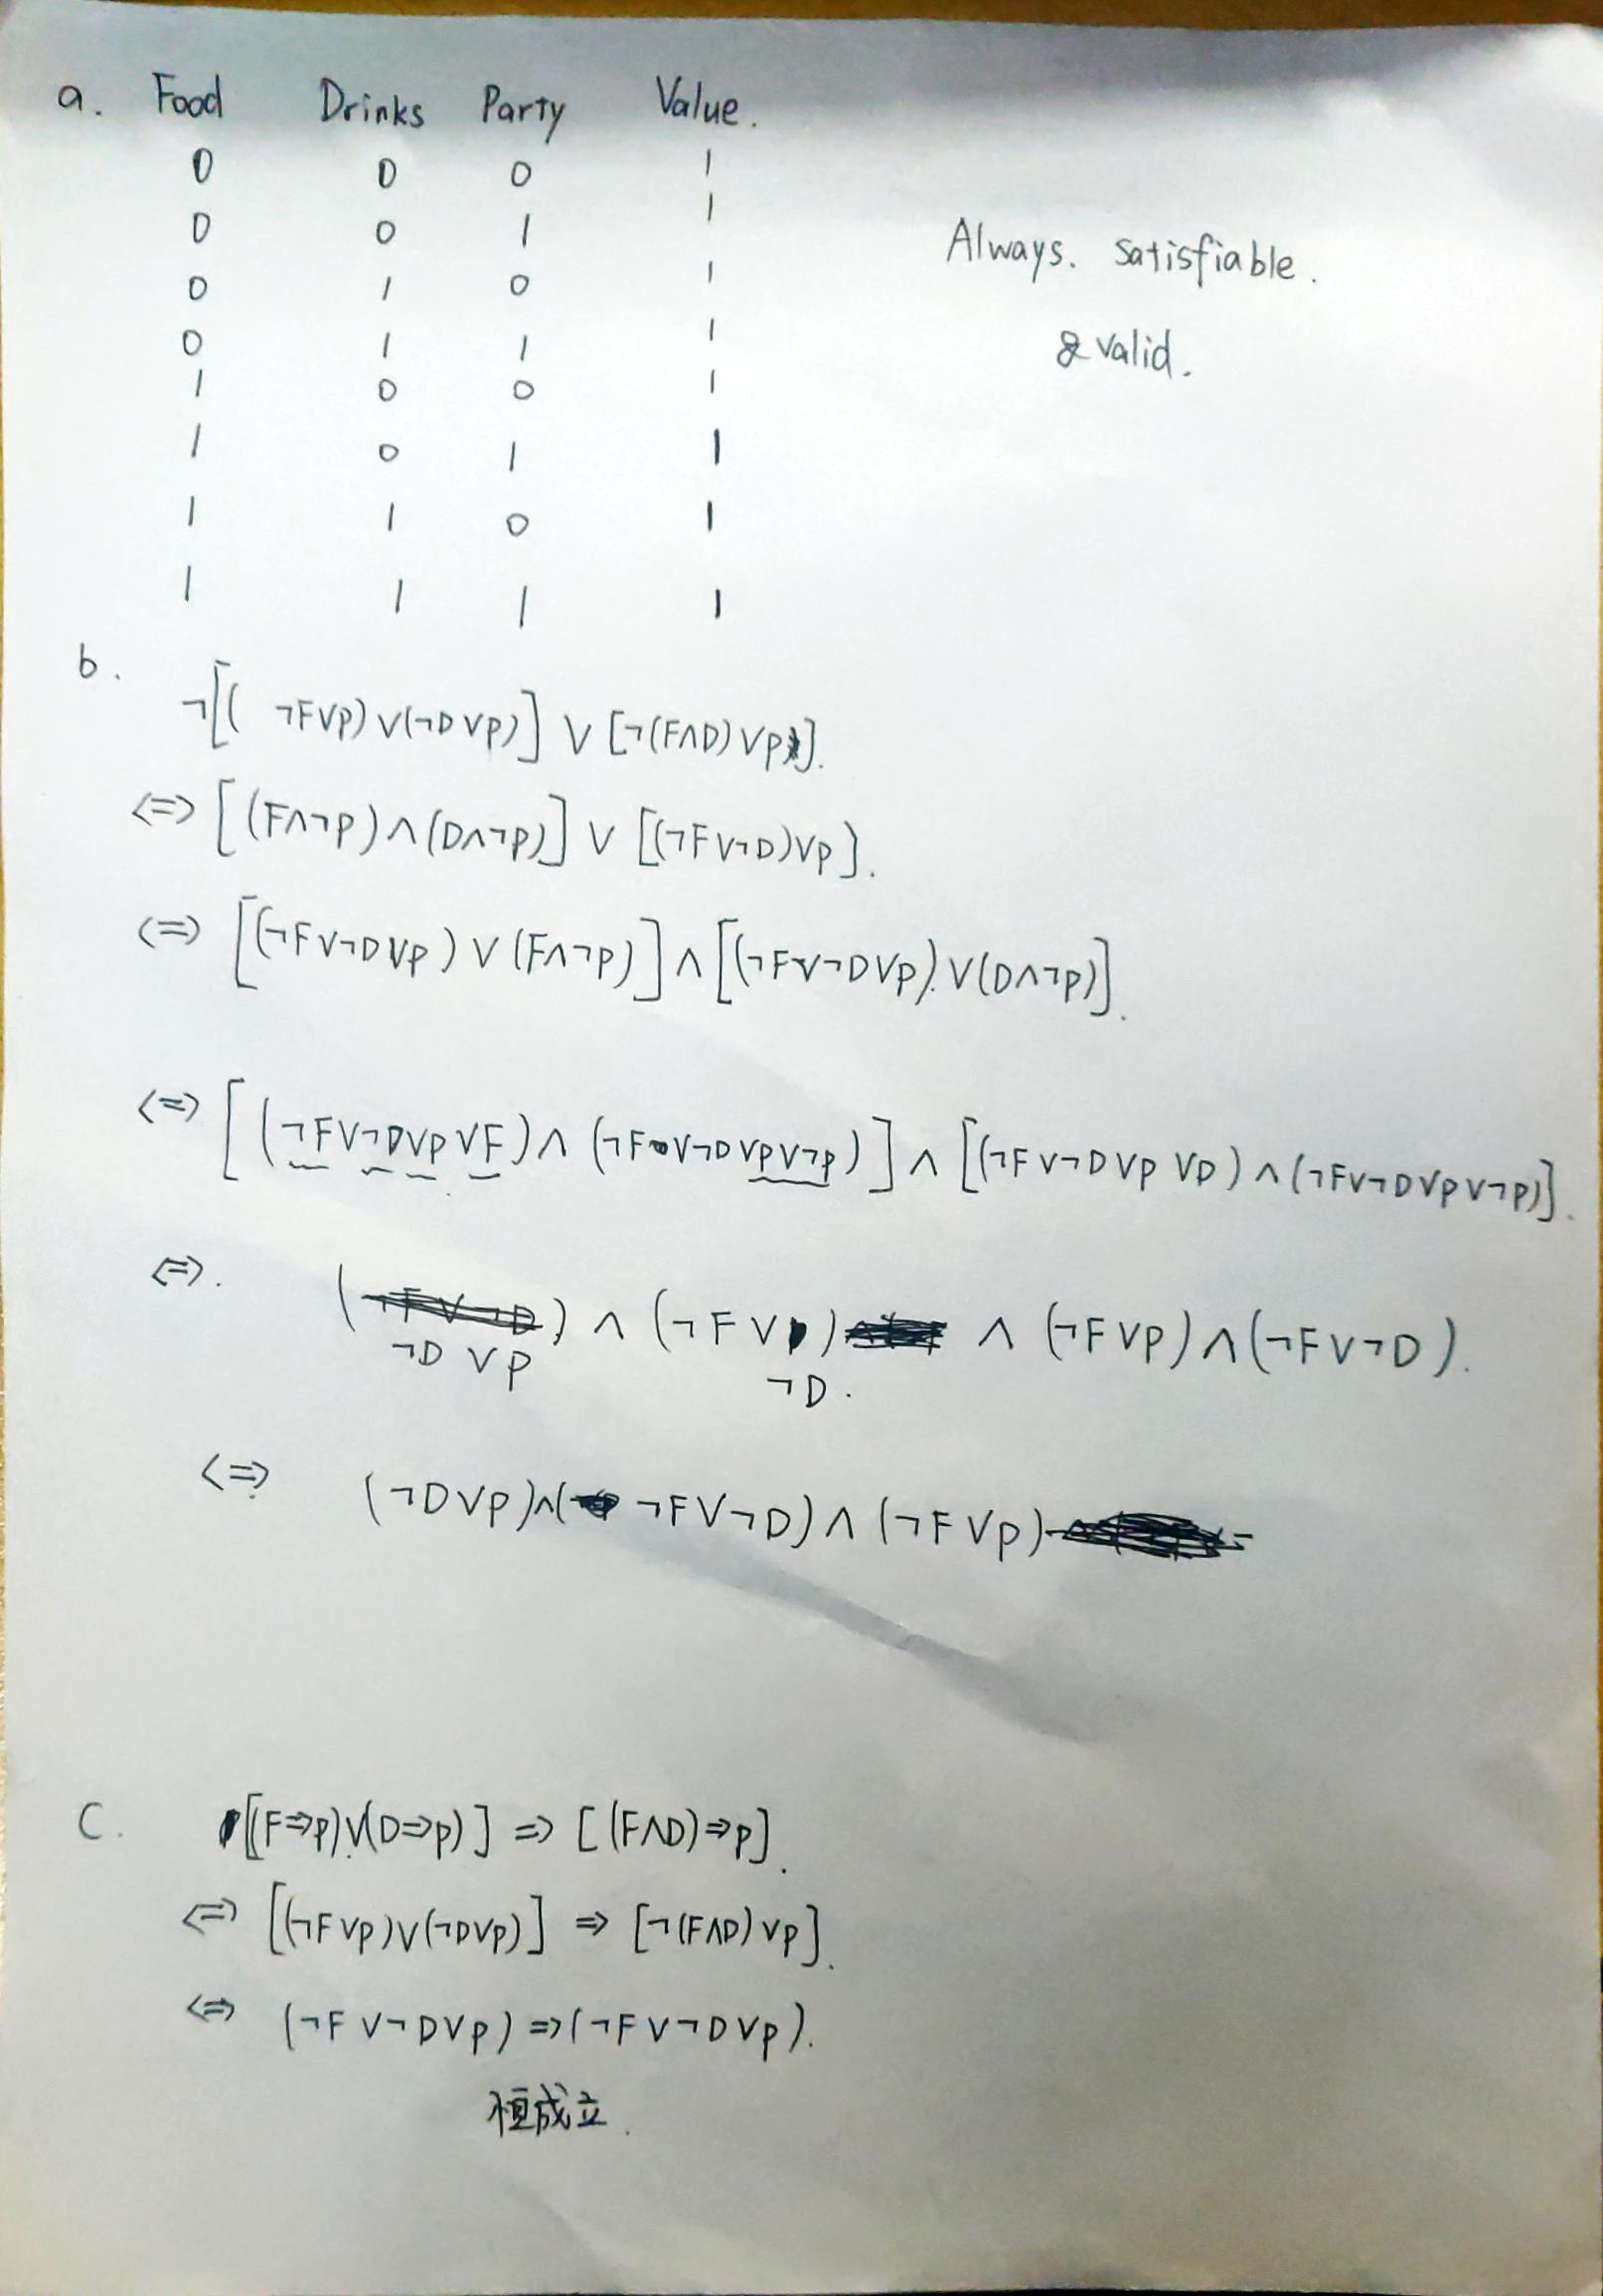 a. Food Drinks Party Value.
0 0 0 1
0 0 1 1
0 1 0 1
0 1 1 1
1 0 0 1
1 0 1 1
1 1 0 1
1 1 1 1
Always. Satisfiable.
& valid.
b.
¬[( ¬F∨P)∨(¬D∨P)] ∨ [¬(F∧D)∨P].
<=> [(F∧¬P)∧(D∧¬P)] ∨ [(¬F∨¬D)∨P].
<=> [(¬F∨¬D∨P)∨(F∧¬P)]∧[(¬F∨¬D∨P).∨(D∧¬P)].
<=> [(¬F∨¬D∨P∨F)∧(¬F∨¬D∨P∨¬P)]∧[(¬F∨¬D∨P∨P)∧(¬F∨¬D∨P∨¬P)].
<=>. ( ) ∧ (¬F∨ ) ∧ (¬F∨P)∧(¬F∨¬D).
¬D∨P ¬D.
<=> (¬D∨P)∧( ¬F∨¬D)∧(¬F∨P)
C. [(F=>P).∨(D=>P)] => [(F∧D)=>P].
<=> [(¬F∨P)∨(¬D∨P)] => [¬(F∧D)∨P].
<=> (¬F∨¬D∨P)=>(¬F∨¬D∨P).
恒成立.